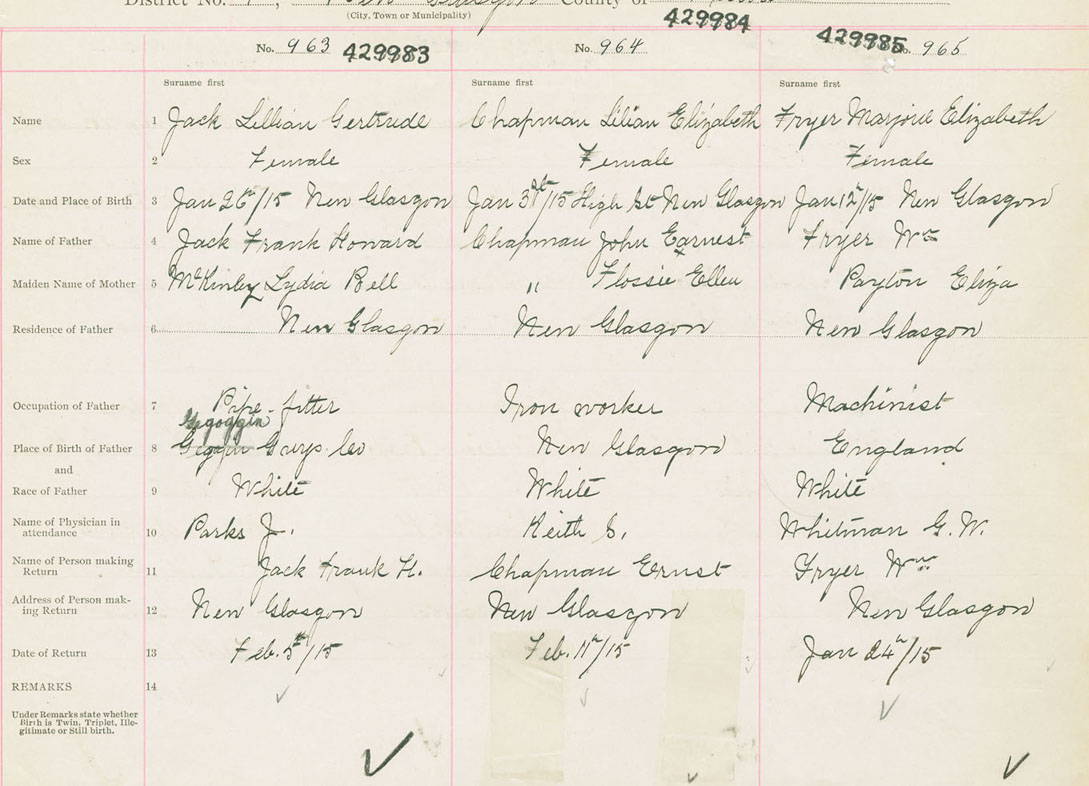 District No. County of
(City, Town or Municipality)
429984
No. 963 429983 No. 964 429985 No. 965
Surname first Surname first Surname first
Name 1 Jack Lillian Gertrude Chapman Lilian Elizabeth Fryer Marjorie Elizabeth
Sex 2 Female Female Female
Date and Place of Birth 3 Jan 26th/15 New Glasgow Jan 31st/15 High St New Glasgow Jan 12th/15 New Glasgow
Name of Father 4 Jack Frank Howard Chapman John Earnest Fryer Wm
Maiden Name of Mother 5 McKinley Lydia Bell " Flossie Ellen Payton Eliza
Residence of Father 6 New Glasgow New Glasgow New Glasgow
Occupation of Father 7 Pipe-fitter Iron worker Machinist
Place of Birth of Father 8 Guys. Co New Glasgow England
and
Race of Father 9 White White White
Name of Physician in
attendance 10 Parks J. Keith S. Whitman G. W.
Name of Person making
Return 11 Jack Frank H. Chapman Ernst Fryer Wm
Address of Person mak-
ing Return 12 New Glasgow New Glasgow New Glasgow
Date of Return 13 Feb. 5th/15 Feb. 11th/15 Jan 24th/15
REMARKS 14
Under Remarks state whether
Birth is Twin, Triplet, Ille-
gitimate or Still birth.